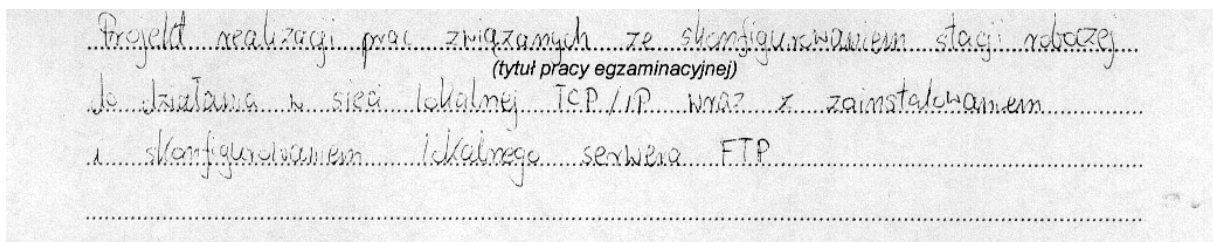 Projekt realizacji prac związanych ze skonfigurowaniem stacji roboczej
(tytuł pracy egzaminacyjnej)
do działania w sieci lokalnej TCP/IP wraz z zainstalowaniem
i skonfigurowaniem lokalnego serwera FTP